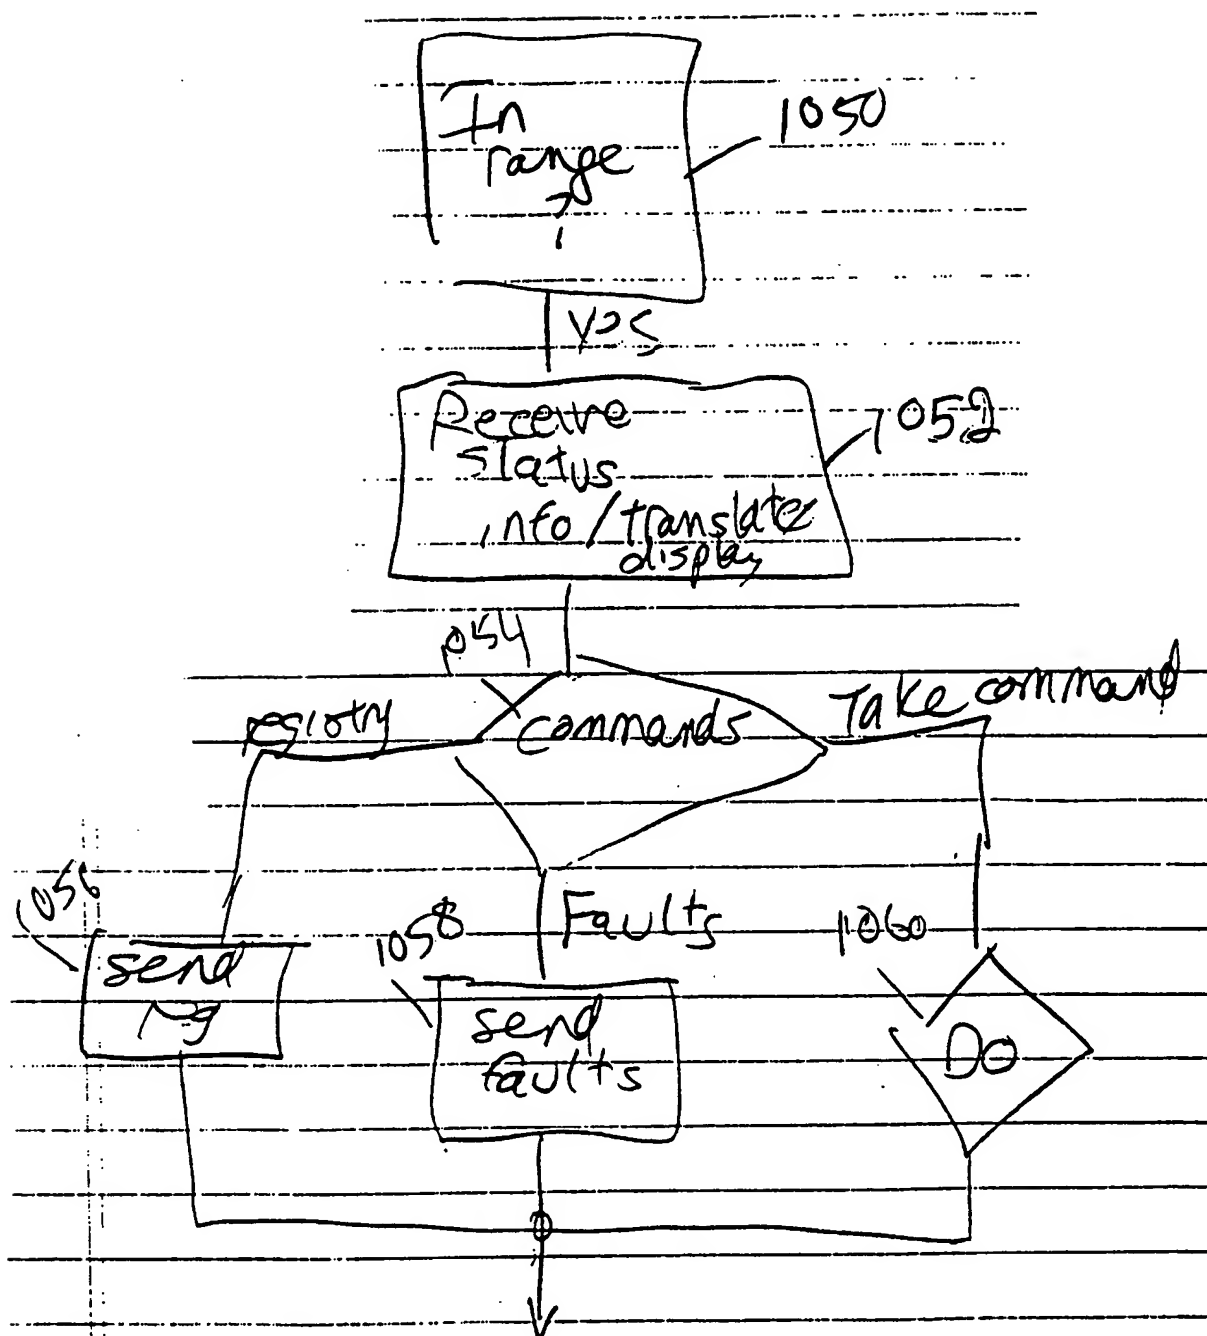 In
range
?
1050
yes
Receive
status
info / translate
display
1052
1054
commands
registry
Take command
Faults
1056
send
1058
send
faults
1060
Do